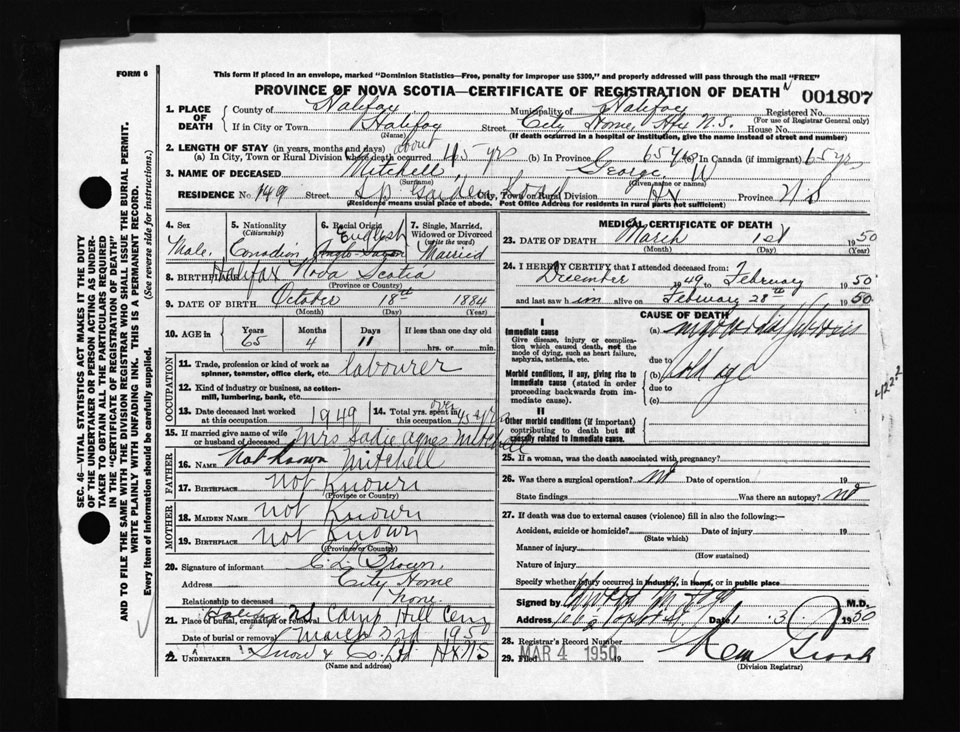 FORM 6
This form if placed in an envelope, marked "Dominion Statistics—Free, penalty for improper use $300," and properly addressed will pass through the mail "FREE"
PROVINCE OF NOVA SCOTIA—CERTIFICATE OF REGISTRATION OF DEATH
001807
1. PLACE OF DEATH
County of Halifax Municipality of Halifax Registered No.
(For use of Registrar General only)
If in City or Town Halifax Street City Home, Hfx N.S. House No.
(Name) (If death occurred in a hospital or institution, give the name instead of street and number)
2. LENGTH OF STAY (in years, months and days) about
(a) In City, Town or Rural Division where death occurred 65 yrs (b) In Province 65 yrs (c) In Canada (if immigrant) 65 yrs
3. NAME OF DECEASED Mitchell George W
(Surname) (Given name or names)
RESIDENCE No. 149 Street Sp Garden Road City, Town or Rural Division HX Province N S
(Residence means usual place of abode. Post Office Address for residents in rural parts not sufficient)
4. Sex Male
5. Nationality (Citizenship) Canadian
6. Racial Origin English Anglo-Saxon
7. Single, Married, Widowed or Divorced (write the word) Married
8. BIRTHPLACE Halifax Nova Scotia
(Province or Country)
9. DATE OF BIRTH October 18th 1884
(Month) (Day) (Year)
10. AGE in Years 65 Months 4 Days 11 If less than one day old hrs. or min.
OCCUPATION
11. Trade, profession or kind of work as spinner, teamster, office clerk, etc. labourer
12. Kind of industry or business, as cotton-mill, lumbering, bank, etc.
13. Date deceased last worked at this occupation 1949
14. Total yrs. spent in over 45 yrs
15. If married give name of wife or husband of deceased Mrs Sadie Agnes Mitchell
FATHER
16. NAME Not Known Mitchell
17. BIRTHPLACE Not Known
(Province or Country)
MOTHER
18. MAIDEN NAME Not Known
19. BIRTHPLACE Not Known
(Province or Country)
20. Signature of informant C L Brown
Address City Home
Relationship to deceased none
21. Place of burial, cremation or removal Halifax NS Camp Hill Cem
Date of burial or removal March 3rd 1950
22. UNDERTAKER Snow & Co. Ltd HXNS
(Name and address)
MEDICAL CERTIFICATE OF DEATH
23. DATE OF DEATH March 1st 1950
(Month) (Day) (Year)
24. I HEREBY CERTIFY that I attended deceased from:
December 1949 to February 1950
and last saw him alive on February 28th 1950
CAUSE OF DEATH
I
Immediate cause
Give disease, injury or complication which caused death, not the mode of dying, such as heart failure, asphyxia, asthenia, etc.
(a)
due to
Morbid conditions, if any, giving rise to immediate cause (stated in order proceeding backwards from immediate cause).
(b) old age
due to
(c)
II
Other morbid conditions (if important) contributing to death but not causally related to immediate cause.
422.2
25. If a woman, was the death associated with pregnancy?
26. Was there a surgical operation? no Date of operation 19
State findings Was there an autopsy? no
27. If death was due to external causes (violence) fill in also the following:—
Accident, suicide or homicide? Date of injury 19
(State which)
Manner of injury
(How sustained)
Nature of injury
Specify whether injury occurred in industry, in home, or in public place
Signed by M.D.
Address Date 1. 3. 1950
28. Registrar's Record Number
29. Filed MAR 4 1950 19
(Division Registrar)
SEC. 46—VITAL STATISTICS ACT MAKES IT THE DUTY OF THE UNDERTAKER OR PERSON ACTING AS UNDERTAKER TO OBTAIN ALL THE PARTICULARS REQUIRED IN THE "CERTIFICATE OF REGISTRATION OF DEATH" AND TO FILE THE SAME WITH THE DIVISION REGISTRAR WHO SHALL ISSUE THE BURIAL PERMIT.
WRITE PLAINLY WITH UNFADING INK. THIS IS A PERMANENT RECORD.
Every item of information should be carefully supplied. (See reverse side for instructions.)